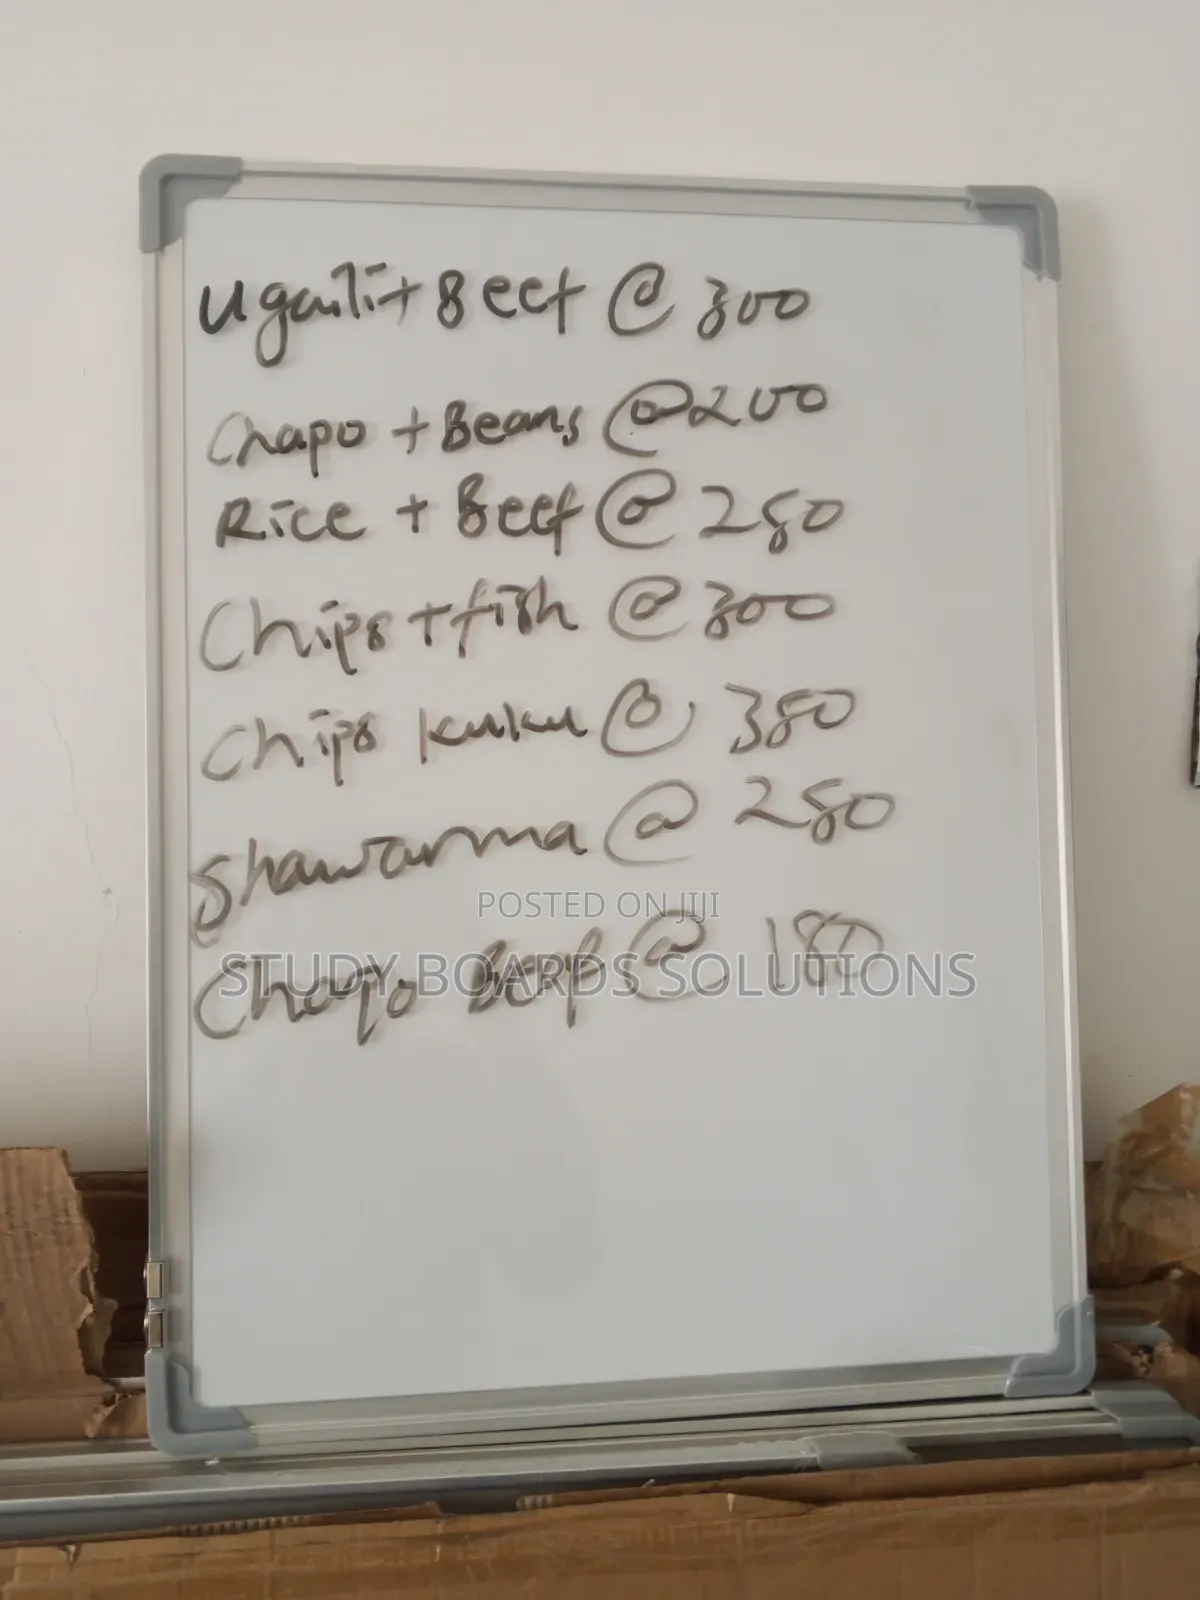 Ugaili+Beef @ 300
Chapo + Beans @ 200
Rice + Beef @ 250
Chips + fish @ 300
Chips kuku @ 350
Shawarma @ 250
POSTED ON JIJI
STUDY BOARDS SOLUTIONS
Chapo Beef @ 180